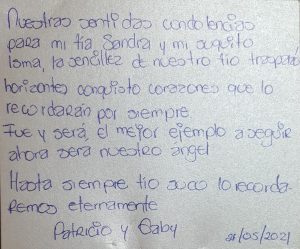 Nuestras sentidas condolencias
para mi tía Sandra y mi suquito
Isma, la sencillez de nuestro tio traspaso
horizontes conquisto corazones que lo
recordarán por siempre.
Fue y será el mejor ejemplo a seguir
ahora será nuestro ángel
Hasta siempre tio suco lo recorda-
remos eternamente
Patricio y Gaby
21/05/2021